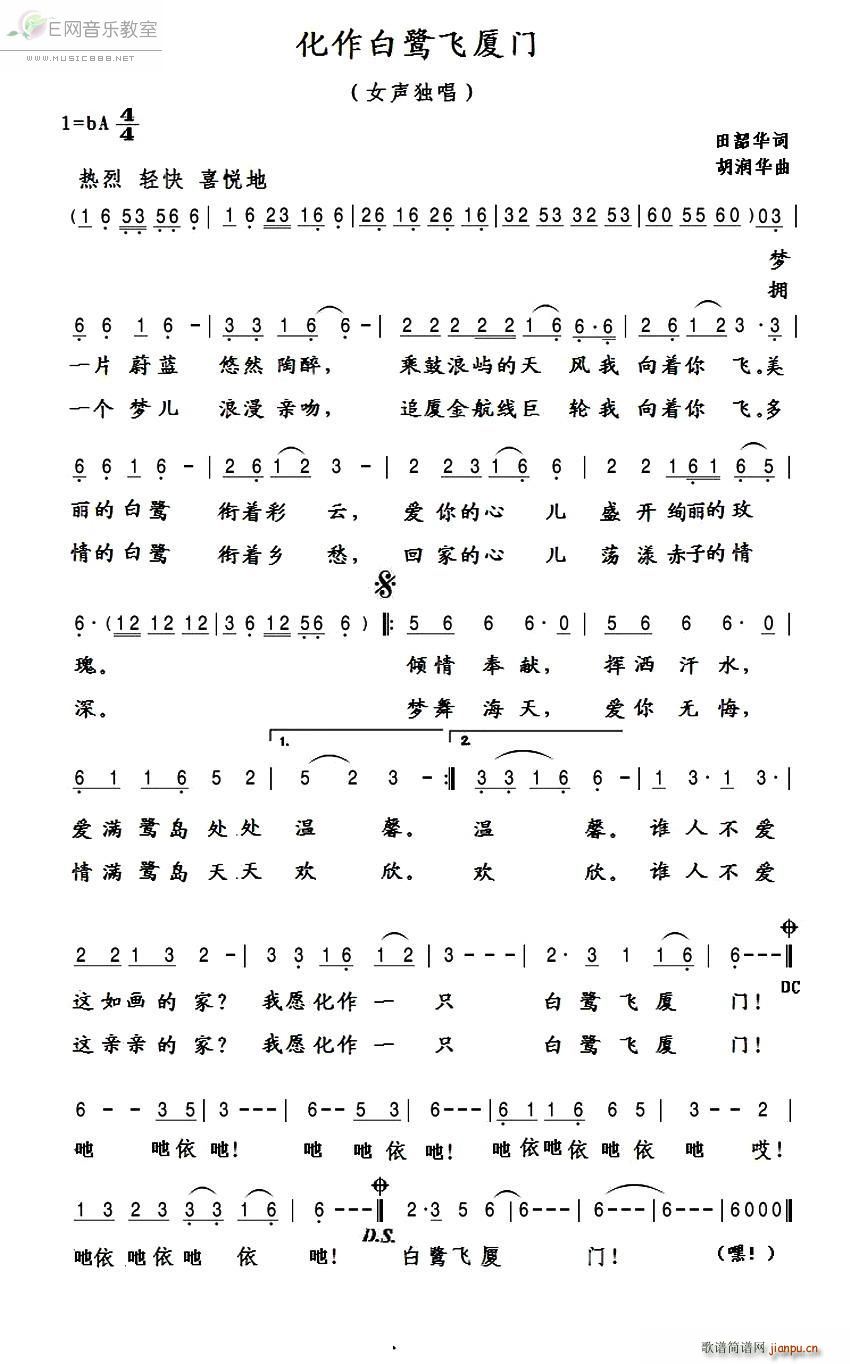 E网音乐教室
WWW.MUSIC888.NET
化作白鹭飞厦门
(女声独唱)
1=bA 4/4
田韶华词
胡润华曲
热烈 轻快 喜悦地
(1 6 53 56 6 | 1 6 23 16 6 | 26 16 26 16 | 32 53 32 53 | 60 55 60 ) 03 |
梦
拥
6 6 1 6 - | 3 3 1 6 6 - | 2 2 2 2 2 1 6 6·6 | 2 6 1 2 3·3 |
一片蔚蓝 悠然陶醉, 乘鼓浪屿的天 风我 向着你 飞。美
一个梦儿 浪漫亲吻, 追厦金航线巨 轮我 向着你 飞。多
6 6 1 6 - | 2 6 1 2 3 - | 2 2 3 1 6 6 | 2 2 1 6 1 6 5 |
丽的白鹭 衔着彩 云, 爱你的心 儿 盛开绚丽的玫
情的白鹭 衔着乡 愁, 回家的心 儿 荡漾赤子的情
6·(12 12 12 | 3 6 12 56 6 ) ‖: 5 6 6 6·0 | 5 6 6 6·0 |
瑰。 倾情奉献, 挥洒汗水,
深。 梦舞海天, 爱你无悔,
1. 2.
6 1 1 6 5 2 | 5 2 3 - :‖ 3 3 1 6 6 - | 1 3·1 3· |
爱满鹭岛处处 温 馨。温 馨。谁人不爱
情满鹭岛天天 欢 欣。欢 欣。谁人不爱
2 2 1 3 2 - | 3 3 1 6 1 2 | 3 - - - | 2·3 1 1 6 | 6 - - - ‖
DC
这如画的家? 我愿化作一 只 白鹭飞厦 门!
这亲亲的家? 我愿化作一 只 白鹭飞厦 门!
6 - - 3 5 | 3 - - - | 6 - - 5 3 | 6 - - - | 6 1 1 6 6 5 | 3 - - 2 |
吔 吔依吔! 吔 吔依吔! 吔依吔依吔依吔 哎!
1 3 2 3 3 3 1 6 | 6 - - - ‖ 2·3 5 6 6 | 6 - - - | 6 - - - | 6 - - - | 6000 ‖
D.S.
吔依吔依吔 依 吔! 白鹭飞厦 门! (嘿!)
歌谱简谱网 jianpu.cn